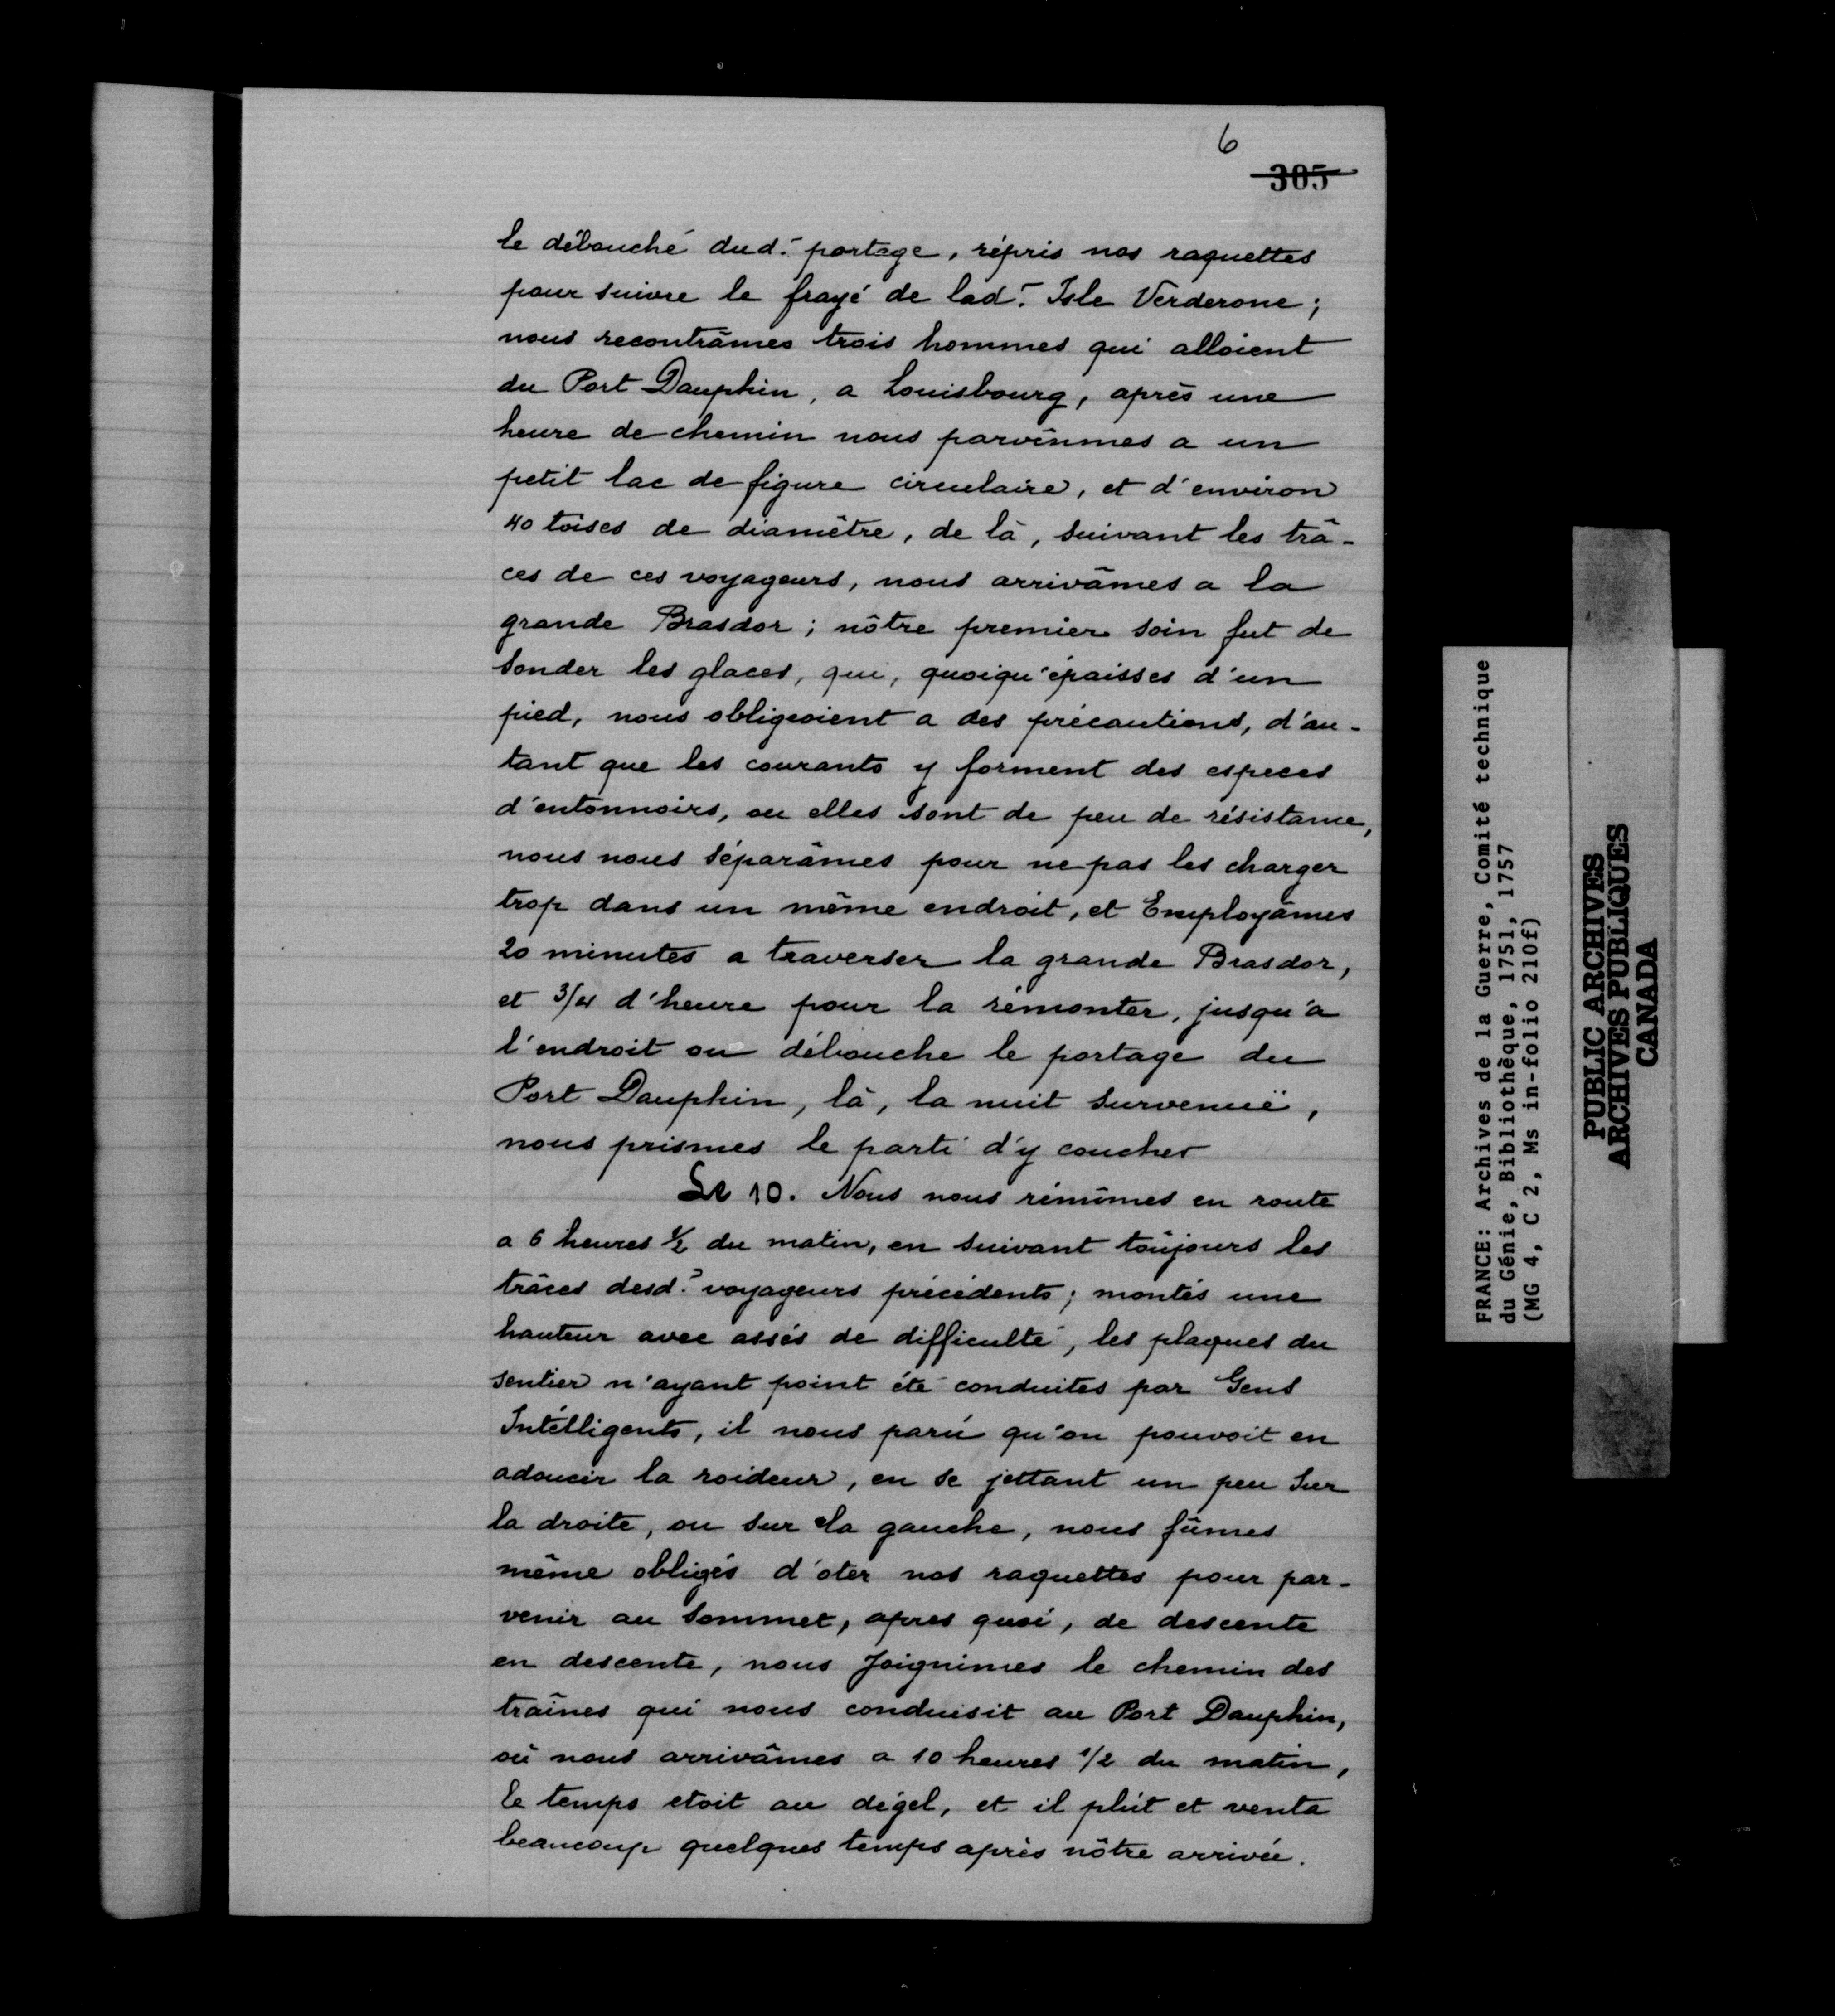 6
305
le débouché dud.t portage, répris nos raquettes
pour suivre le frayé de lad.t Isle Verderone;
nous recontrâmes trois hommes qui alloient
du Port Dauphin, a Louisbourg, après une
heure de chemin nous parvînmes a un
petit lac de figure circulaire, et d'environ
40 toises de diamêtre, de là, suivant les trâ-
ces de ces voyageurs, nous arrivâmes a la
grande Brasdor; nôtre premier soin fut de
sonder les glaces, qui, quoiqu'épaisses d'un
pied, nous obligeoient a des précautions, d'au-
tant que les courants y forment des especes
d'entonnoirs, ou elles sont de peu de résistance,
nous nous séparâmes pour ne pas les charger
trop dans un même endroit, et Employâmes
20 minutes a traverser la grande Brasdor,
et 3/4 d'heure pour la rémonter, jusqu'a
l'endroit ou débouche le portage du
Port Dauphin, là, la nuit survenuë,
nous prismes le parti d'y coucher
Le 10. Nous nous rémîmes en route
a 6 heures 1/2 du matin, en suivant toûjours les
trâces desd.s voyageurs précédents; montés une
hauteur avec assés de difficulté, les plaques du
sentier n'ayant point été conduites par Gens
Intélligents, il nous parû qu'on pouvoit en
adoucir la roideur, en se jettant un peu sur
la droite, ou sur la gauche, nous fûmes
même obligés d'oter nos raquettes pour par-
venir au sommet, apres quoi, de descente
en descente, nous Joignimes le chemin des
traînes qui nous conduisit au Port Dauphin,
où nous arrivâmes a 10 heures 1/2 du matin,
le temps etoit au dégel, et il plût et venta
beaucoup quelques temps après nôtre arrivée.
FRANCE: Archives de la Guerre, Comité technique
du Génie, Bibliothèque, 1751, 1757
(MG 4, C 2, Ms in-folio 210f)
PUBLIC ARCHIVES
ARCHIVES PUBLIQUES
CANADA